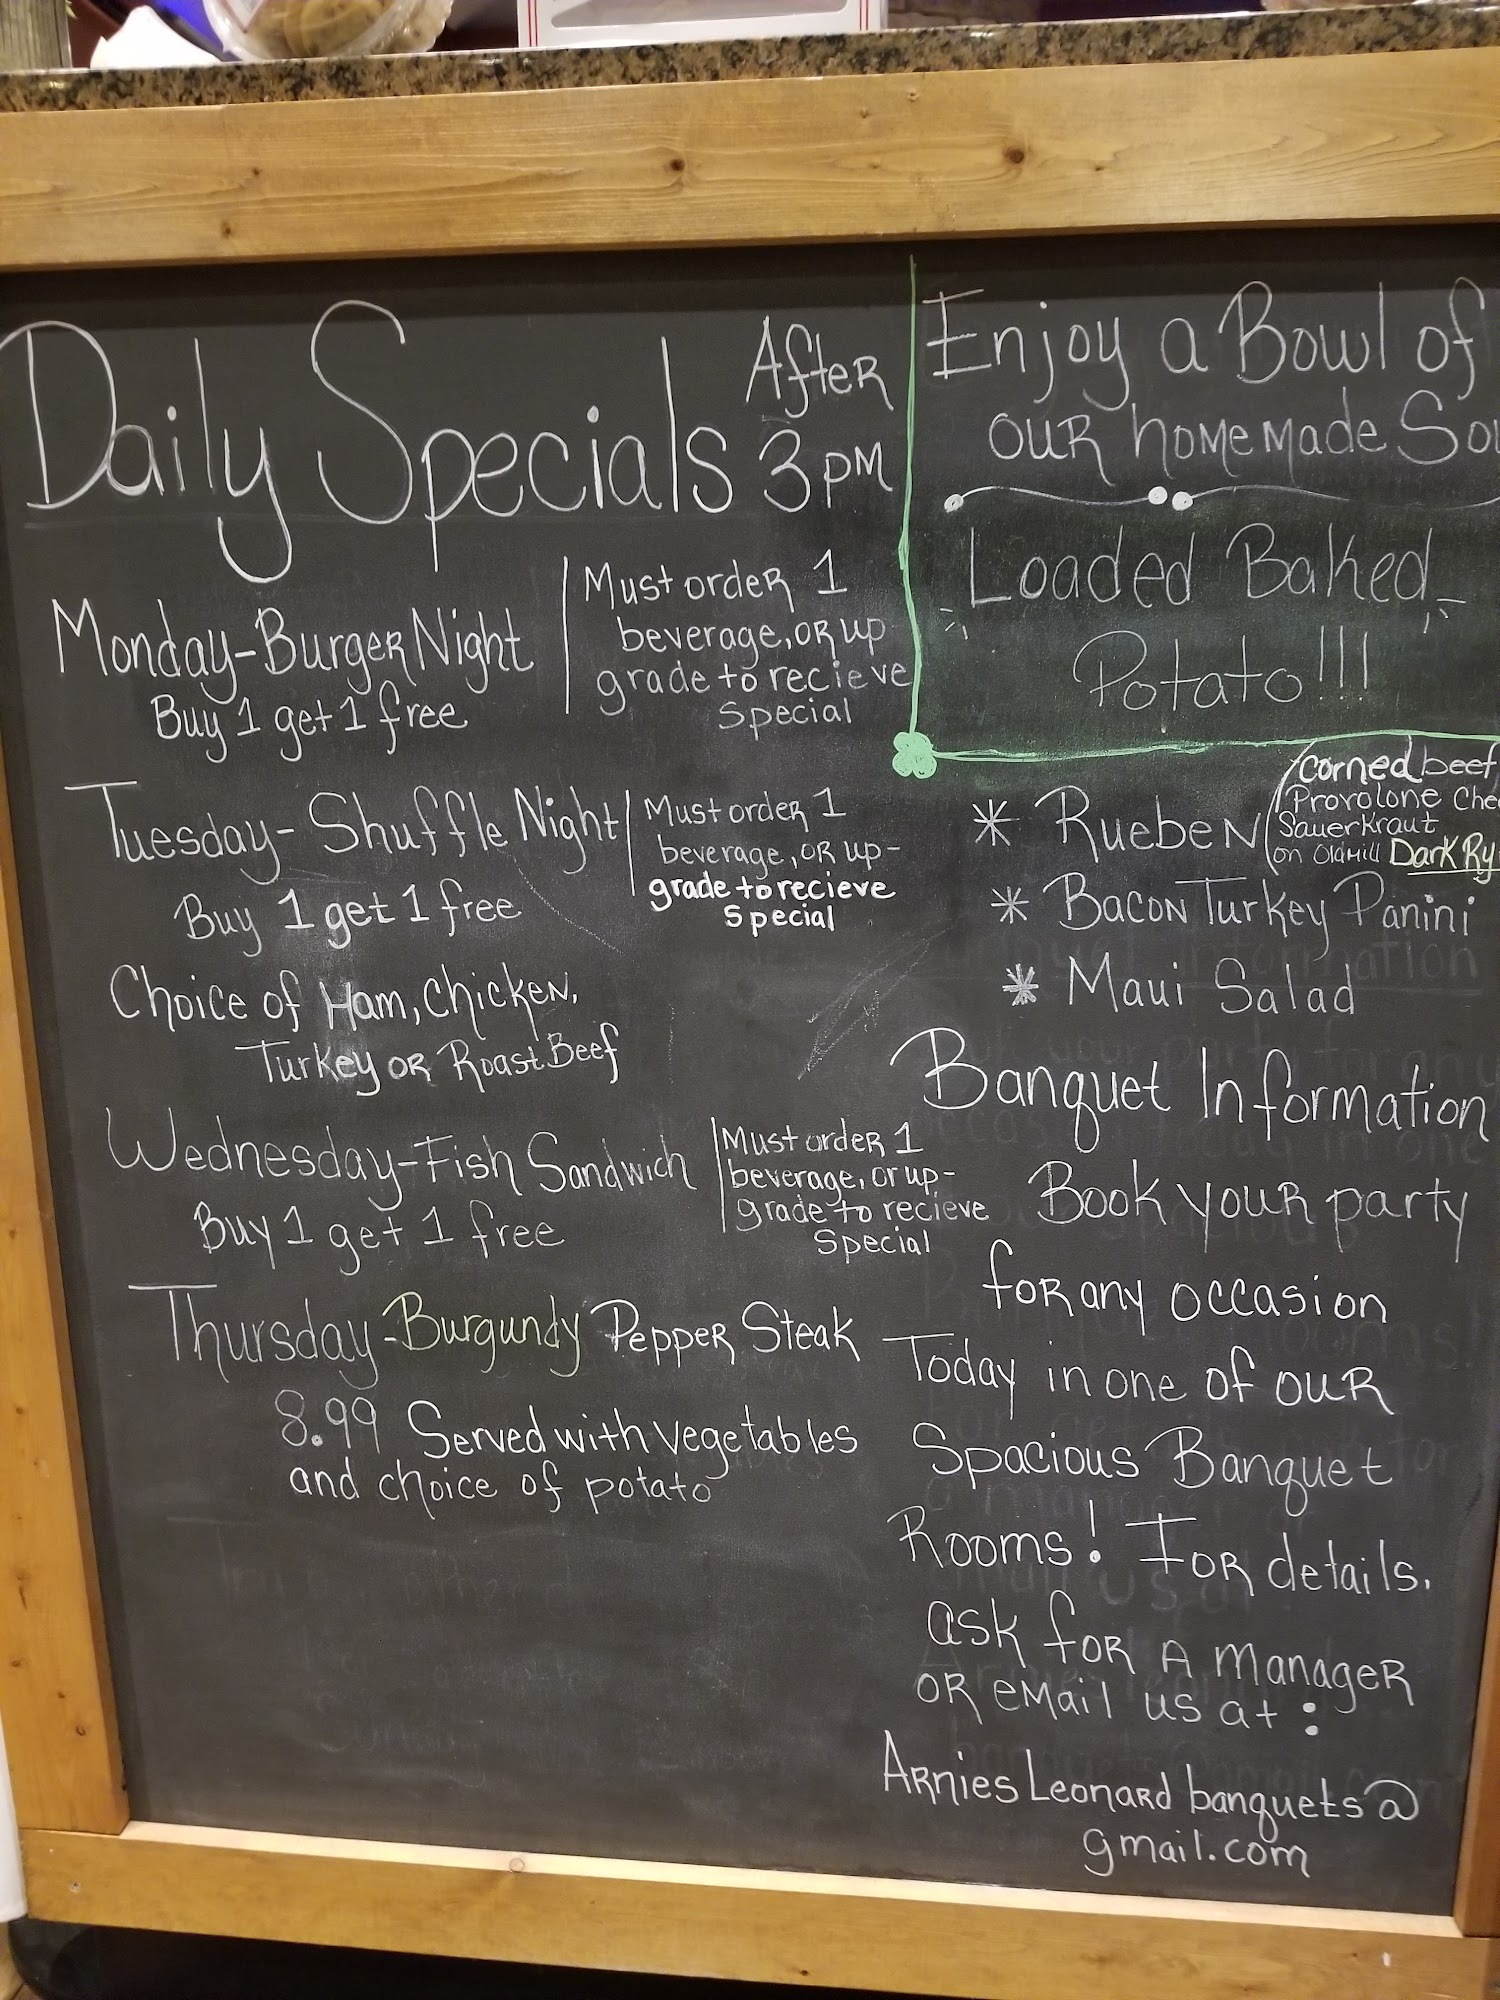 Daily Specials After
3pm
Monday-Burger Night
Buy 1 get 1 free
Must order 1
beverage, or up
grade to recieve
Special
Tuesday- Shuffle Night
Buy 1 get 1 free
Must order 1
beverage, or up-
grade to recieve
Special
Choice of Ham, Chicken,
Turkey or Roast Beef
Wednesday-Fish Sandwich
Buy 1 get 1 free
Must order 1
beverage, or up-
grade to recieve
Special
Thursday-Burgundy Pepper Steak
8.99 Served with vegetables
and choice of potato
Enjoy a Bowl of
our homemade Sou
Loaded Baked
Potato!!!
* Rueben
corned beef,
Provolone Che
Sauerkraut
on Old Mill Dark Ry
* Bacon Turkey Panini
* Maui Salad
Banquet Information
Book your party
for any occasion
Today in one of our
Spacious Banquet
Rooms! For details.
ask for a manager
or email us at:
Arnies Leonard banquets@
gmail.com